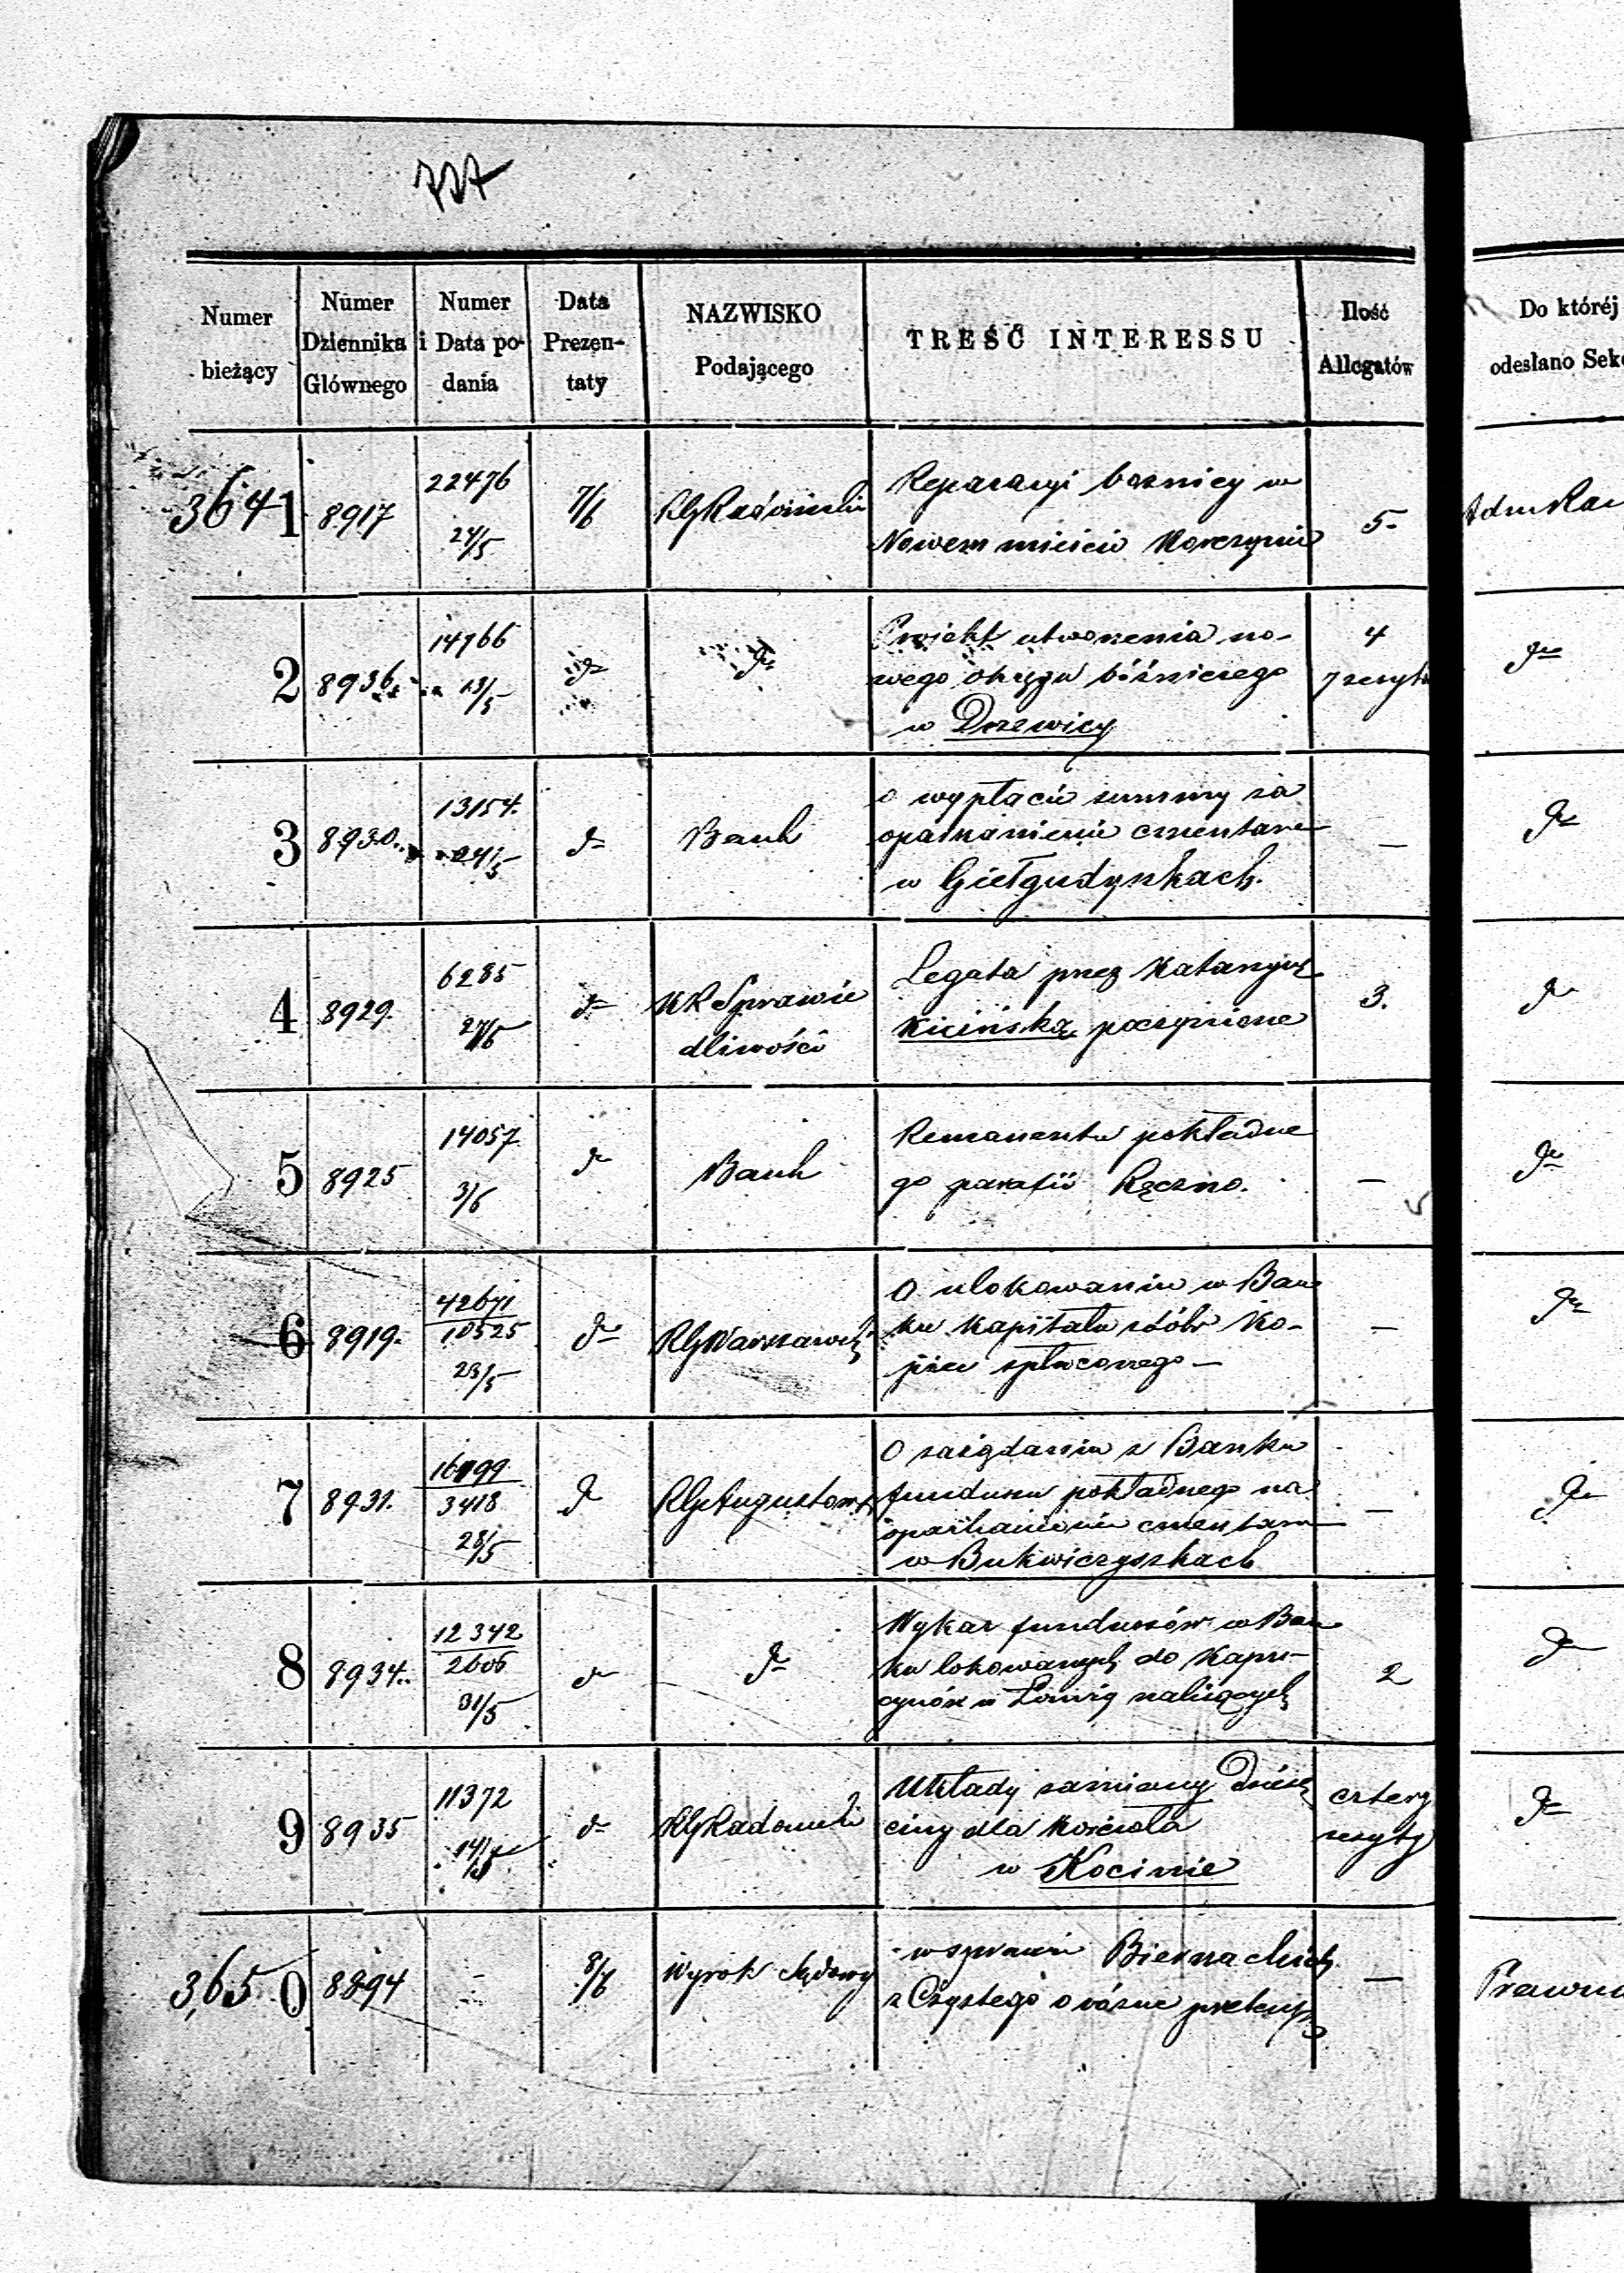 727
Numer bieżący
Numer Dziennika Głównego
Numer i Data podania
Data Prezentaty
NAZWISKO Podającego
TREŚĆ INTERESSU
Ilość Allegatów
Do któréj
odesłano Sek
3641 8917 22476 24/5 7/6
Reparacyi bożnicy w
Nowem mieście Korczynie
5.
2 8936 14766 13/5 do do
Projekt utworzenia no-
wego okręgu bóżniczego
w Drzewicy
4
do
3 8930 13154. 24/5 do Bank
o wypłacie summy za
oparkanienie cmentarza
w Giełgudyszkach.
—
do
4 8929. 6285 27/5 do KR Sprawie
dliwości
Legata przez Katarzynę
Kicińską poczynione
3.
do
5 8925 14057 3/6 do Bank
Remanentu pokładne
go parafii Ręczno.
—
do
6 8919. 42671
10525
23/5 do RG Warszawski
O ulokowaniu w Ban
ku kapitału z dóbr Ko-
spłaconego —
—
do
7 8931. 3418
28/5 do RG Augustows
O zażądaniu z Banku
funduszu pokładnego na
oparkanienie cmentarza
w Bukwiczyszkach
—
do
8 8934. 12342
2606
31/5 do do
Wykaz funduszów w Ban
ku lokowanych do Kapu-
cynów w Łomży należących
2
do
9 8935 11372 14/5 do RG Radomski
Układy zamiany Dziesię
ciny dla kościoła
w Kocinie
cztery
zeszyty
do
3650 8894 — 8/6 Wyrok Sądowy
w sprawie Biernackich
z Czystego o różne pretensye
—
Prawna